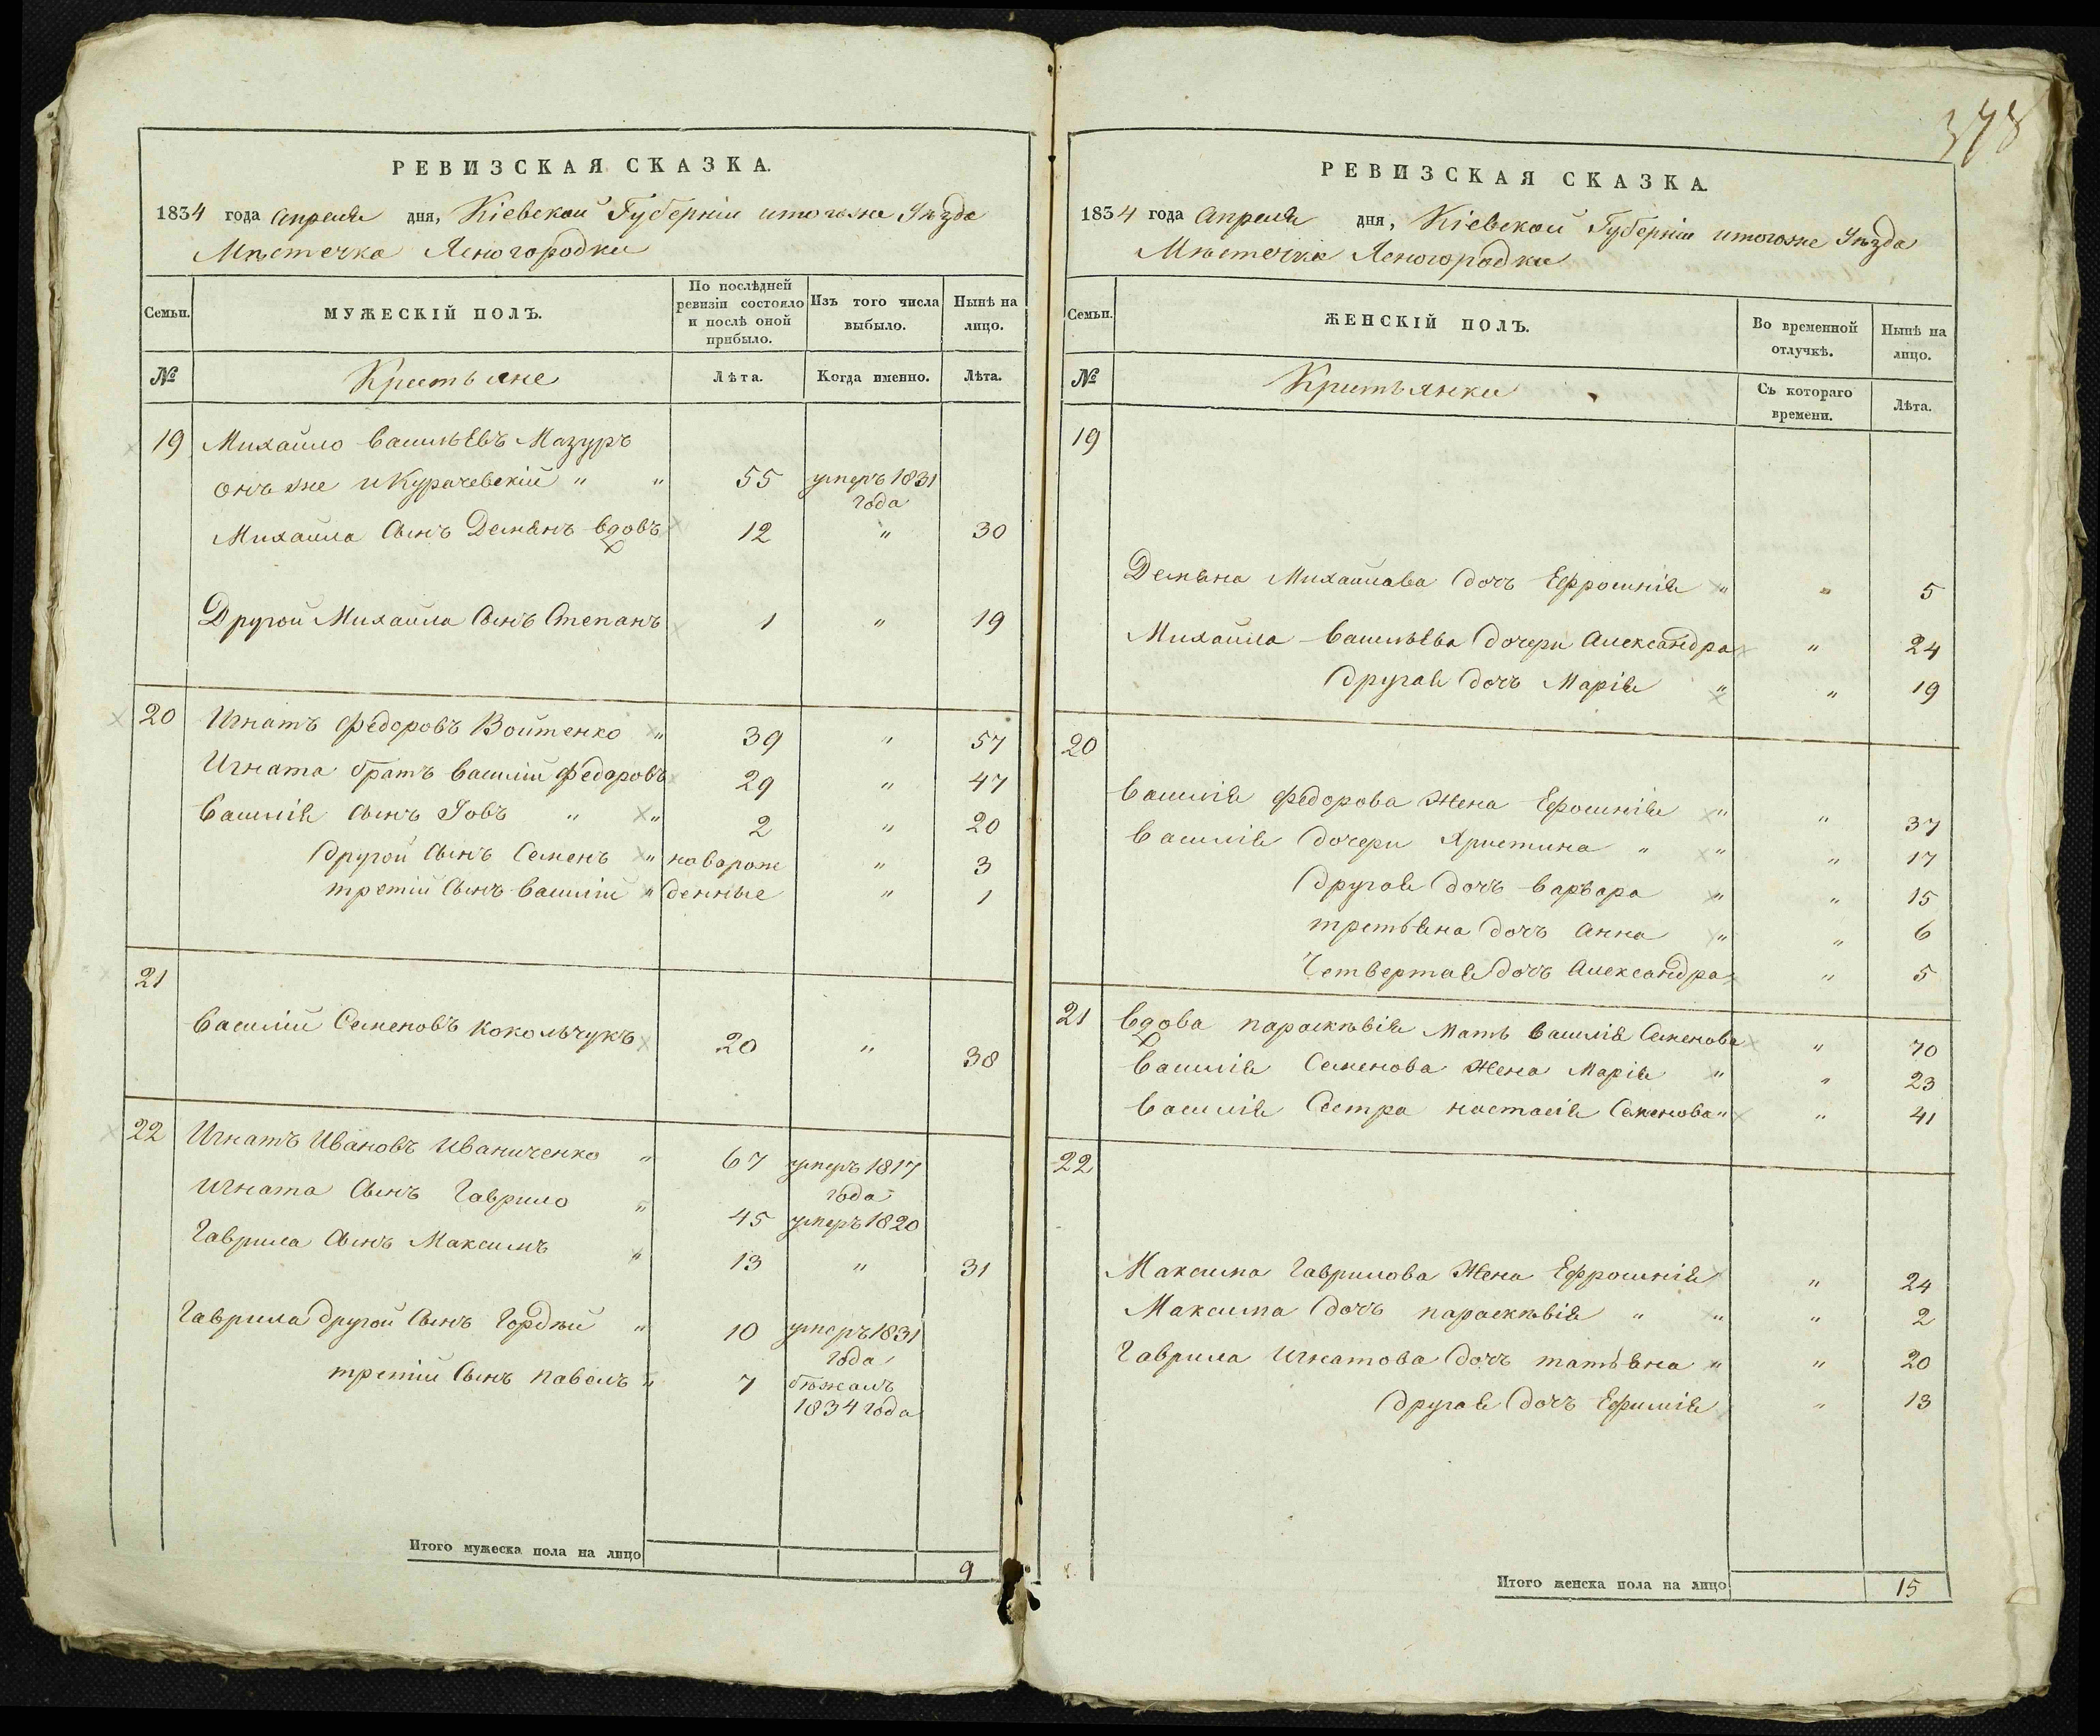 РЕВИЗСКАЯ СКАЗКА.
1834 года Апреля дня, Кіевской Губерніи итогоже Уѣзда
Мѣстечка Ясногородки
Семьи.
МУЖЕСКІЙ ПОЛЪ.
По послѣдней ревизіи состояло и послѣ оной прибыло.
Изъ того числа выбыло.
Нынѣ на лицо.
№
Крестьяне
Лѣта.
Когда именно.
Лѣта.
19 Михайло Васильевъ Мазуръ
онъ же и Курачевскій " " 55 умеръ 1831
года
Михайла Сынъ Демянъ вдовъ 12 " 30
Другой Михайла Сынъ Степанъ 1 " 19
20 Игнатъ Федоровъ Войтенко " 39 " 57
Игната братъ Василій Федоровъ 29 " 47
Василія Сынъ Іовъ " " 2 " 20
Другой Сынъ Семенъ " новорож " 3
третій Сынъ Василій " денные " 1
21
Василій Семеновъ Кокольчукъ 20 " 38
22 Игнатъ Ивановъ Иваниченко " 67 умеръ 1817
года
Игната Сынъ Гаврило " 45 умеръ 1820
Гаврила Сынъ Максимъ " 13 " 31
Гаврила Другой Сынъ Гордѣй " 10 умеръ 1831
года
третій Сынъ Павелъ " 7 бѣжалъ
1834 года
Итого мужеска пола на лицо
9
378
РЕВИЗСКАЯ СКАЗКА.
1834 года Апреля дня, Кіевской Губерніи итогоже Уѣзда
Мѣстечка Ясногородки
Семьи.
ЖЕНСКІЙ ПОЛЪ.
Во временной отлучкѣ.
Нынѣ на лицо.
№
Крестьянки
Съ котораго времени.
Лѣта.
19
Демяна Михайлова Дочь Ефросинія " " 5
Михайла Васильева Дочери Александра " 24
Другая Дочь Марія " " 19
20
Василія Федорова Жена Ефросинія " " 37
Василія Дочери Христина " " " 17
Другая Дочь Варвара " " 15
третьяна Дочь Анна " " 6
Четвертая Дочь Александра " 5
21 Вдова Параскѣвія Мать Василія Семенова " 70
Василія Семенова Жена Марія " " 23
Василія Сестра Настасія Семенова " " 41
22
Максима Гаврилова Жена Ефросинія " 24
Максима Дочь Параскѣвія " " " 2
Гаврила Игнатова Дочь татьяна " " 20
Другая Дочь Ефимія " 13
Итого женска пола на лицо
15